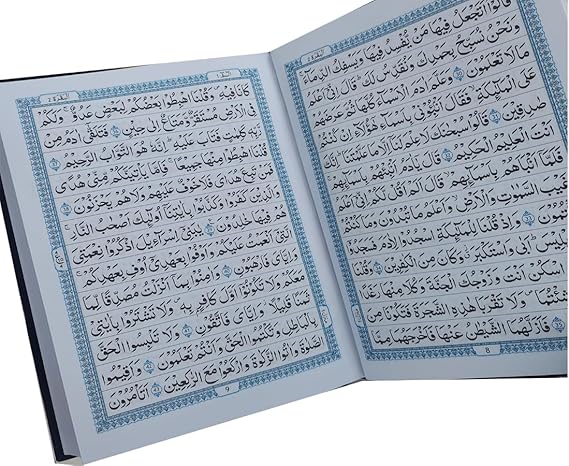 البقرة ٢
الٓمّٓ ١
قَالُوْٓا اَتَجْعَلُ فِيْهَا مَنْ يُّفْسِدُ فِيْهَا وَيَسْفِكُ الدِّمَآءَ
وَنَحْنُ نُسَبِّحُ بِحَمْدِكَ وَنُقَدِّسُ لَكَ قَالَ اِنِّيْٓ اَعْلَمُ
مَا لَا تَعْلَمُوْنَ ٣٠ وَعَلَّمَ اٰدَمَ الْاَسْمَآءَ كُلَّهَا ثُمَّ عَرَضَهُمْ
عَلَى الْمَلٰٓئِكَةِ فَقَالَ اَنْۢبِـُٔوْنِيْ بِاَسْمَآءِ هٰٓؤُلَآءِ اِنْ كُنْتُمْ
صٰدِقِيْنَ ٣١ قَالُوْا سُبْحٰنَكَ لَا عِلْمَ لَنَآ اِلَّا مَا عَلَّمْتَنَا اِنَّكَ
اَنْتَ الْعَلِيْمُ الْحَكِيْمُ ٣٢ قَالَ يٰٓاٰدَمُ اَنْۢبِئْهُمْ بِاَسْمَآئِهِمْ
فَلَمَّآ اَنْۢبَاَهُمْ بِاَسْمَآئِهِمْ قَالَ اَلَمْ اَقُلْ لَّكُمْ اِنِّيْٓ اَعْلَمُ
غَيْبَ السَّمٰوٰتِ وَالْاَرْضِ وَاَعْلَمُ مَا تُبْدُوْنَ وَمَا كُنْتُمْ
٣٣ وَاِذْ قُلْنَا لِلْمَلٰٓئِكَةِ اسْجُدُوْا لِاٰدَمَ فَسَجَدُوْٓا
اَبٰى وَاسْتَكْبَرَ وَكَانَ مِنَ الْكٰفِرِيْنَ ٣٤ وَقُلْنَا
اسْكُنْ اَنْتَ وَزَوْجُكَ الْجَنَّةَ وَكُلَا مِنْهَا رَغَدًا
شِئْتُمَا وَلَا تَقْرَبَا هٰذِهِ الشَّجَرَةَ فَتَكُوْنَا مِنَ
فَاَزَلَّهُمَا الشَّيْطٰنُ عَنْهَا فَاَخْرَجَهُمَا مِمَّا
8
البقرة ٢
الٓمّٓ ١
كَانَا فِيْهِ وَقُلْنَا اهْبِطُوْا بَعْضُكُمْ لِبَعْضٍ عَدُوٌّ وَلَكُمْ
فِى الْاَرْضِ مُسْتَقَرٌّ وَّمَتَاعٌ اِلٰى حِيْنٍ ٣٦ فَتَلَقّٰٓى اٰدَمُ مِنْ
رَّبِّهٖ كَلِمٰتٍ فَتَابَ عَلَيْهِ اِنَّهٗ هُوَ التَّوَّابُ الرَّحِيْمُ ٣٧
قُلْنَا اهْبِطُوْا مِنْهَا جَمِيْعًا فَاِمَّا يَاْتِيَنَّكُمْ مِّنِّيْ هُدًى
فَمَنْ تَبِعَ هُدَايَ فَلَا خَوْفٌ عَلَيْهِمْ وَلَا هُمْ يَحْزَنُوْنَ ٣٨
وَالَّذِيْنَ كَفَرُوْا وَكَذَّبُوْا بِاٰيٰتِنَآ اُولٰٓئِكَ اَصْحٰبُ النَّارِ
هُمْ فِيْهَا خٰلِدُوْنَ ٣٩ يٰبَنِيْٓ اِسْرَآءِيْلَ اذْكُرُوْا نِعْمَتِيَ
الَّتِيْٓ اَنْعَمْتُ عَلَيْكُمْ وَاَوْفُوْا بِعَهْدِيْٓ اُوْفِ بِعَهْدِكُمْ
وَاِيَّايَ فَارْهَبُوْنِ ٤٠ وَاٰمِنُوْا بِمَآ اَنْزَلْتُ مُصَدِّقًا لِّمَا
مَعَكُمْ وَلَا تَكُوْنُوْٓا اَوَّلَ كَافِرٍۢ بِهٖ وَلَا تَشْتَرُوْا بِاٰيٰتِيْ
ثَمَنًا قَلِيْلًا وَّاِيَّايَ فَاتَّقُوْنِ ٤١ وَلَا تَلْبِسُوا الْحَقَّ
بِالْبَاطِلِ وَتَكْتُمُوا الْحَقَّ وَاَنْتُمْ تَعْلَمُوْنَ ٤٢ وَاَقِيْمُوا
الصَّلٰوةَ وَاٰتُوا الزَّكٰوةَ وَارْكَعُوْا مَعَ الرّٰكِعِيْنَ ٤٣ اَتَاْمُرُوْنَ
9